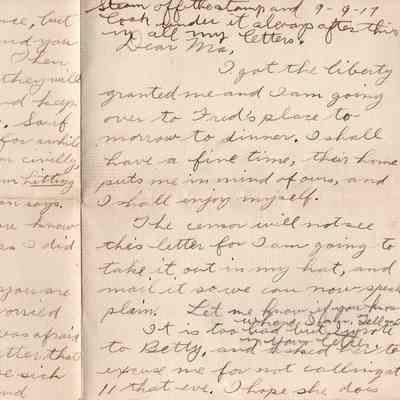 nce, but
nd you
Then
they will
nd keep
. Say
for awhile
civilly
hitting
an says.
know
as I did
you are
worried
was afraid
tter that
be sick
nd
Steam off the stamp and 9-9-17
look under it always after this
in all my letters.
Dear Ma,
I got the liberty
granted me and I am going
over to Fred's place to-
morrow to dinner. I shall
have a fine time, their home
puts me in mind of ours, and
I shall enjoy myself.
The censor will not see
this letter for I am going to
take it out in my hat, and
mail it so we can now speak
plain. Let me know if you
where I am. Tell
in your letter.
It is too bad but I wrote
to Betty, and asked her to
excuse me for not calling at
11 that eve. I hope she does